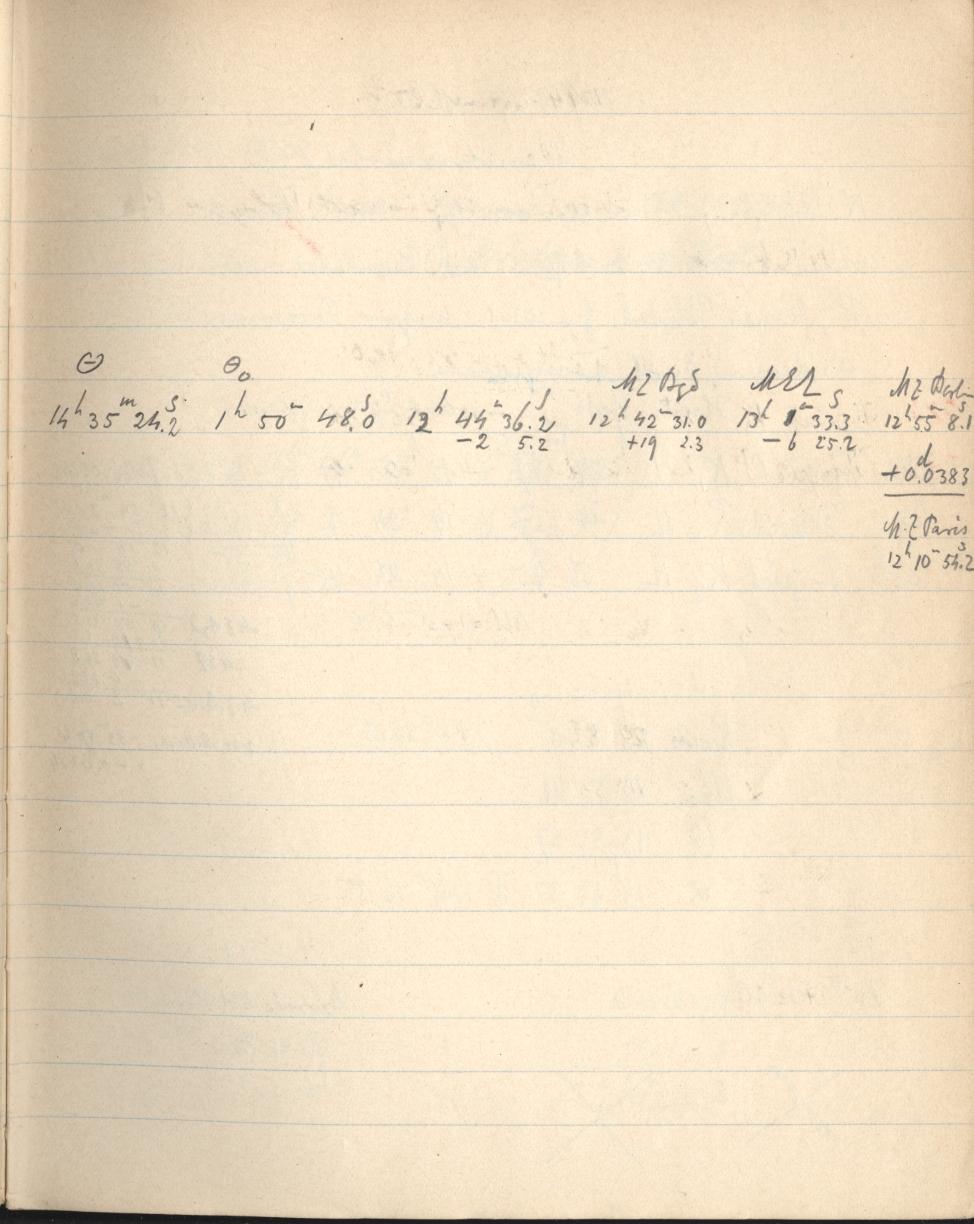 Θ Θ₀ M.Z Bgd M.E.Z M.Z Berlin
14ʰ 35ᵐ 24.2ˢ 1ʰ 50ᵐ 48.0ˢ 12ʰ 44ᵐ 36.2ˢ 12ʰ 42ᵐ 31.0 13ʰ 1ᵐ 33.3ˢ 12ʰ 55ᵐ 8.1ˢ
−2 5.2 +19 2.3 −6 25.2
+0.ᵈ0383
M.Z Paris
12ʰ 10ᵐ 54.2ˢ